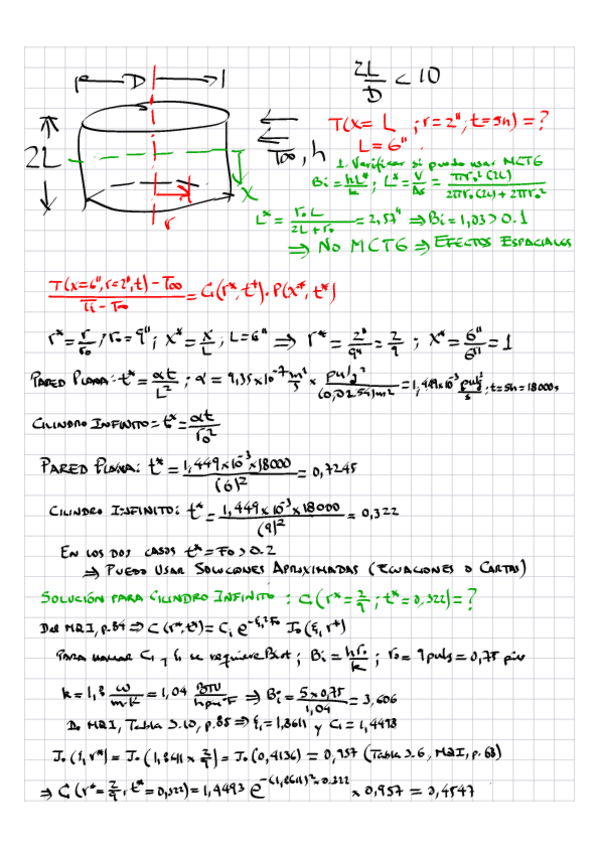 D
2L/D < 10
T(x= L ; r=2", t=5h) = ?
L = 6"
2L
T∞, h
1. Verificar si puedo usar MCTG
Bi = hL*/k ; L* = V/As = πr₀²(2L)/(2πr₀(2L)+2πr₀²)
x
r
L* = r₀L/(2L+r₀) = 2,57" ⇒ Bi = 1,03 > 0.1
⇒ NO MCTG ⇒ EFECTOS ESPACIALES
(T(x=6", r=2", t) - T∞)/(Ti - T∞) = C(r*, t*) · P(x*, t*)
r* = r/r₀ ; r₀ = 9" ; x* = x/L ; L=6" ⇒ r* = 2"/9" = 2/9 ; x* = 6"/6" = 1
PARED PLANA: t* = αt/L² ; α = 9,35x10⁻⁷ m²/s x pulg²/(0,0254)²m² = 1,449x10⁻³ pulg²/s ; t=5h = 18000s
CILINDRO INFINITO = t* = αt/r₀²
PARED PLANA: t* = 1,449x10⁻³x18000/(6)² = 0,7245
CILINDRO INFINITO: t* = 1,449x10⁻³x18000/(9)² = 0,322
EN LOS DOS CASOS t* = Fo > 0.2
⇒ PUEDO USAR SOLUCIONES APROXIMADAS (ECUACIONES O CARTAS)
SOLUCIÓN PARA CILINDRO INFINITO : C(r*=2/9 ; t*=0,322) = ?
Del MRI, p.84 ⇒ C(r*,t*) = C₁ e^(-ξ₁²Fo) J₀(ξ₁ r*)
PARA HALLAR C₁ y ξ₁ se requiere Biot ; Bi = hr₀/k ; r₀ = 9 pulg = 0,75 pie
k = 1,8 W/m·K = 1,04 BTU/h pie °F ⇒ Bi = 5x0,75/1,04 = 3,606
De MRI, Tabla 5.10, p.85 ⇒ ξ₁ = 1,8611 y C₁ = 1,4493
J₀(ξ₁ r*) = J₀(1,8611 x 2/9) = J₀(0,4136) = 0,957 (Tabla 3.6, MRI, p.68)
⇒ C(r*=2/9, t*=0,322) = 1,4493 e^(-(1,8611)²x0.322) x 0,957 = 0,4547